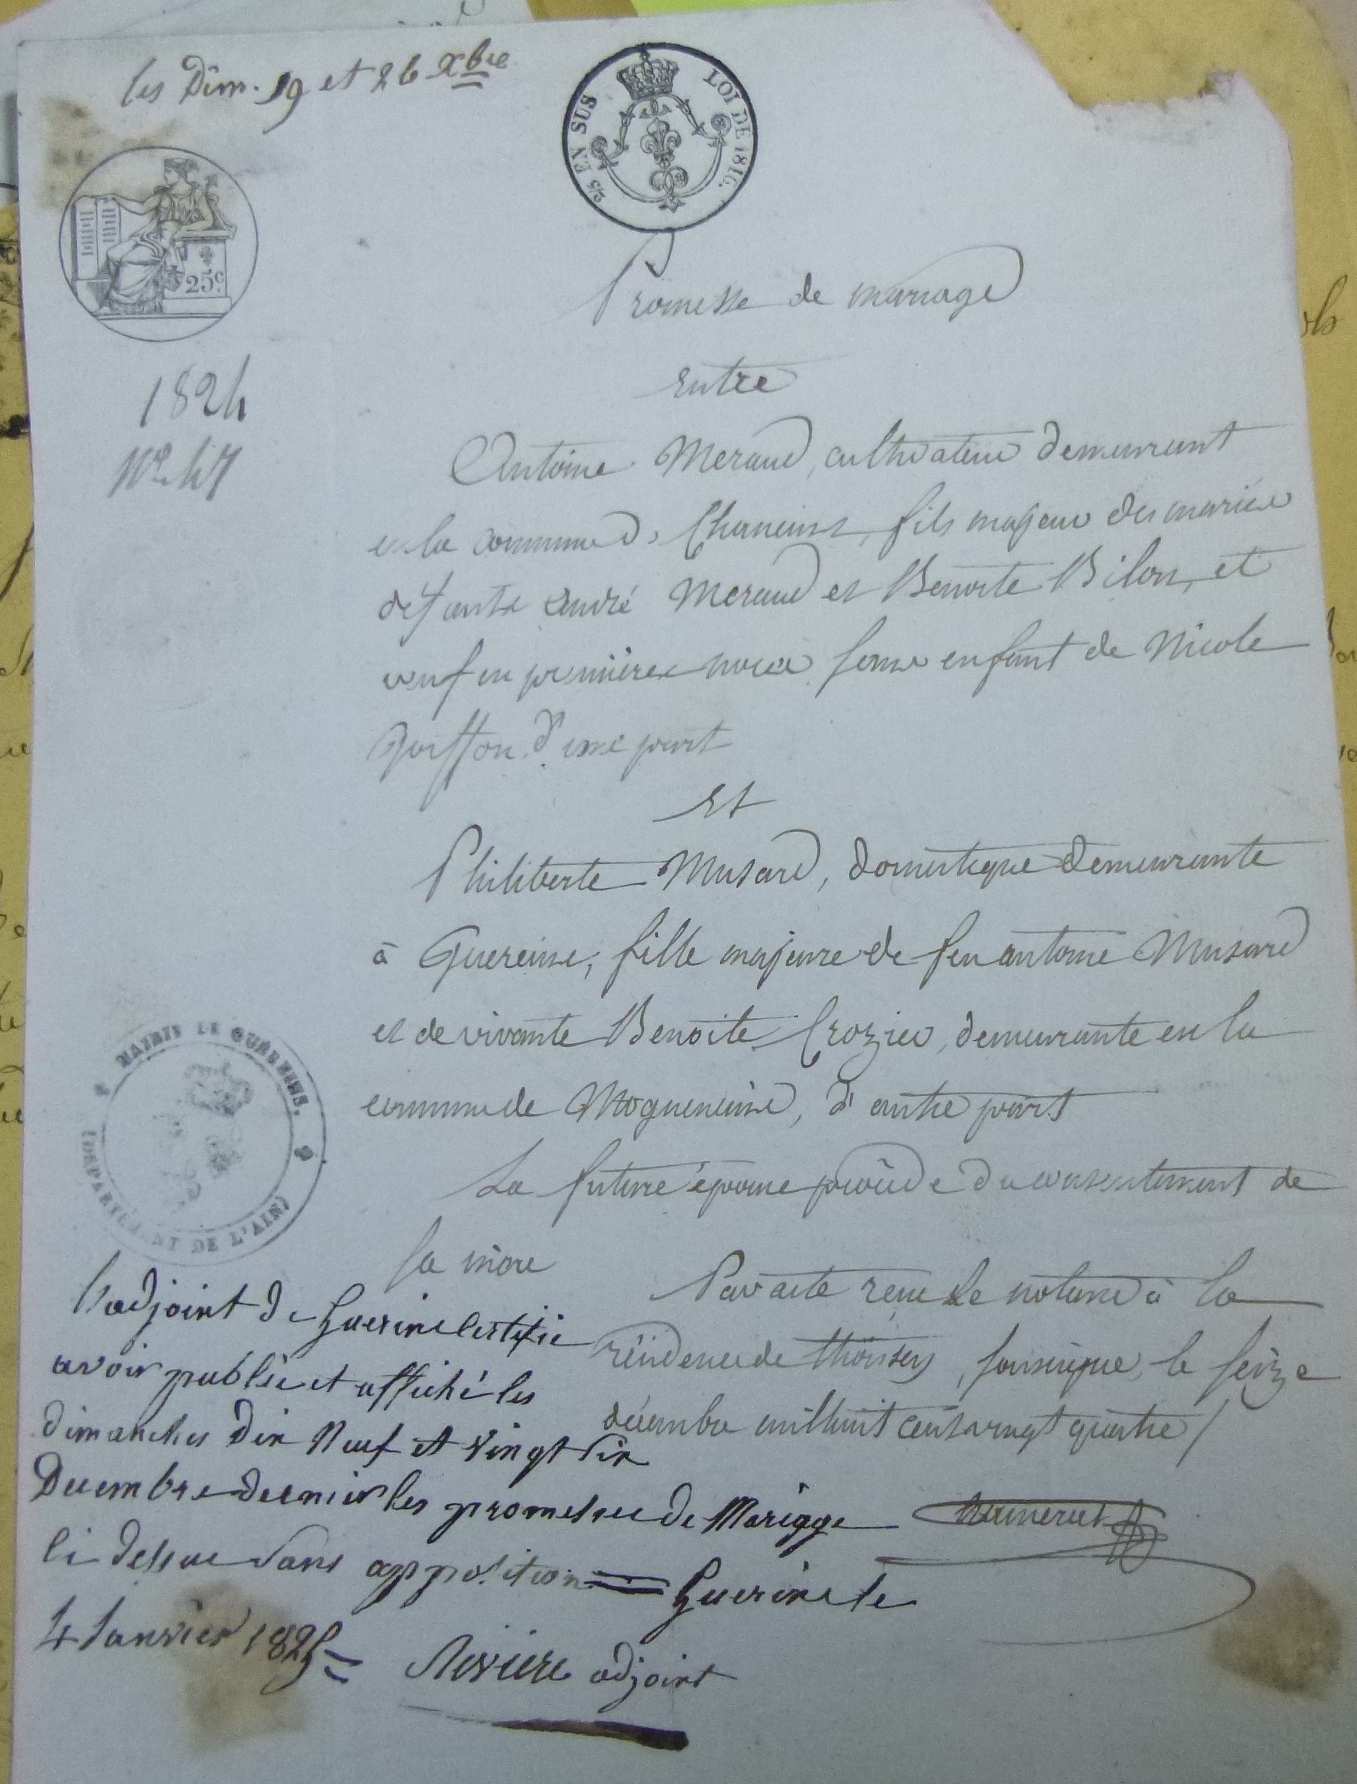 les Dim. 19 et 26 Xbre
2/5 EN SUS LOI DE 1816.
25c
Promesse de mariage
1824
entre
No 47
Antoine Meraud, cultivateur demeurant
en la commune de Chaneins, fils majeur des mariés
défunts André Meraud et Benoite Bilon, et
veuf en premières noces sans enfant de Nicole
d'une part
et
Philiberte Musard, domestique demeurante
à Guereins, fille majeure de feu antoine Musard
et de vivante Benoite Crozier, demeurante en la
commune de Mogneneins, d'autre part
MAIRIE DE GUÉREINS.
(DÉPARTEMENT DE L'AIN)
La future épouse procède du consentement de
sa mère
Par acte reçu le notaire à la
résidence de thoissey, soussigné, le seize
décembre mil huit cent vingt quatre /
L'adjoint de Guereins Certifie
avoir publié et affiché les
dimanches dix Neuf et vingt six
Decembre dernier les promesses de Mariage
Ci dessus sans opposition = Guereins le
4 Janvier 1825 =
Rivière adjoint